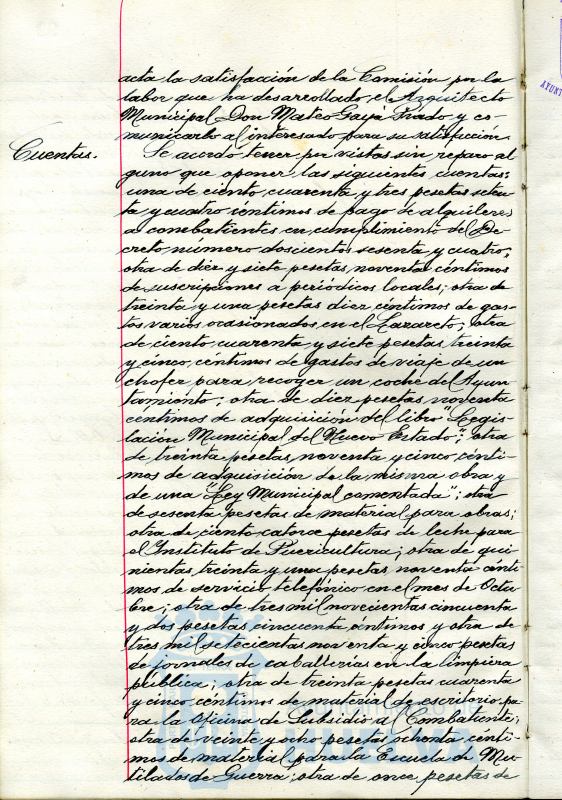 acta la satisfacción de la Comisión por la
labor que ha desarrollado el Arquitecto
Municipal Don Mateo Gaya Prado y co-
municarlo al interesado para su satisfacción.
Cuentas.
Se acordó tener por vistas sin reparo al
guno que oponer, las siguientes cuentas:
una de ciento cuarenta y tres pesetas seten
ta y cuatro céntimos de pago de alquileres
a combatientes en cumplimiento del De-
creto número doscientos sesenta y cuatro,
otra de diez y siete pesetas, noventa céntimos
de suscripciones a periódicos locales; otra de
treinta y una pesetas diez céntimos de gas-
tos varios ocasionados en el Lazareto; otra
de ciento cuarenta y siete pesetas treinta
y cinco céntimos de gastos de viaje de un
chofer para recoger un coche del Ayun
tamiento; otra de diez pesetas noventa
céntimos de adquisición del libro "Legis-
lación Municipal del Nuevo Estado"; otra
de treinta pesetas noventa y cinco cénti-
mos de adquisición de la misma obra y
de una "Ley Municipal comentada"; otra
de sesenta pesetas de material para obras;
otra de ciento catorce pesetas de leche para
el Instituto de Puericultura; otra de qui-
nientas treinta y una pesetas noventa cénti-
mos de servicio telefónico en el mes de Octu-
bre; otra de tres mil novecientas cincuenta
y dos pesetas cincuenta céntimos y otra de
tres mil setecientas noventa y cinco pesetas
de jornales de caballerías en la limpieza
pública; otra de treinta pesetas cuarenta
y cinco céntimos de material de escritorio pa-
ra la Oficina de Subsidio al Combatiente;
otra de veinte y ocho pesetas ochenta cénti-
mos de material para la Escuela de Mu-
tilados de Guerra; otra de once pesetas de
HUELVA